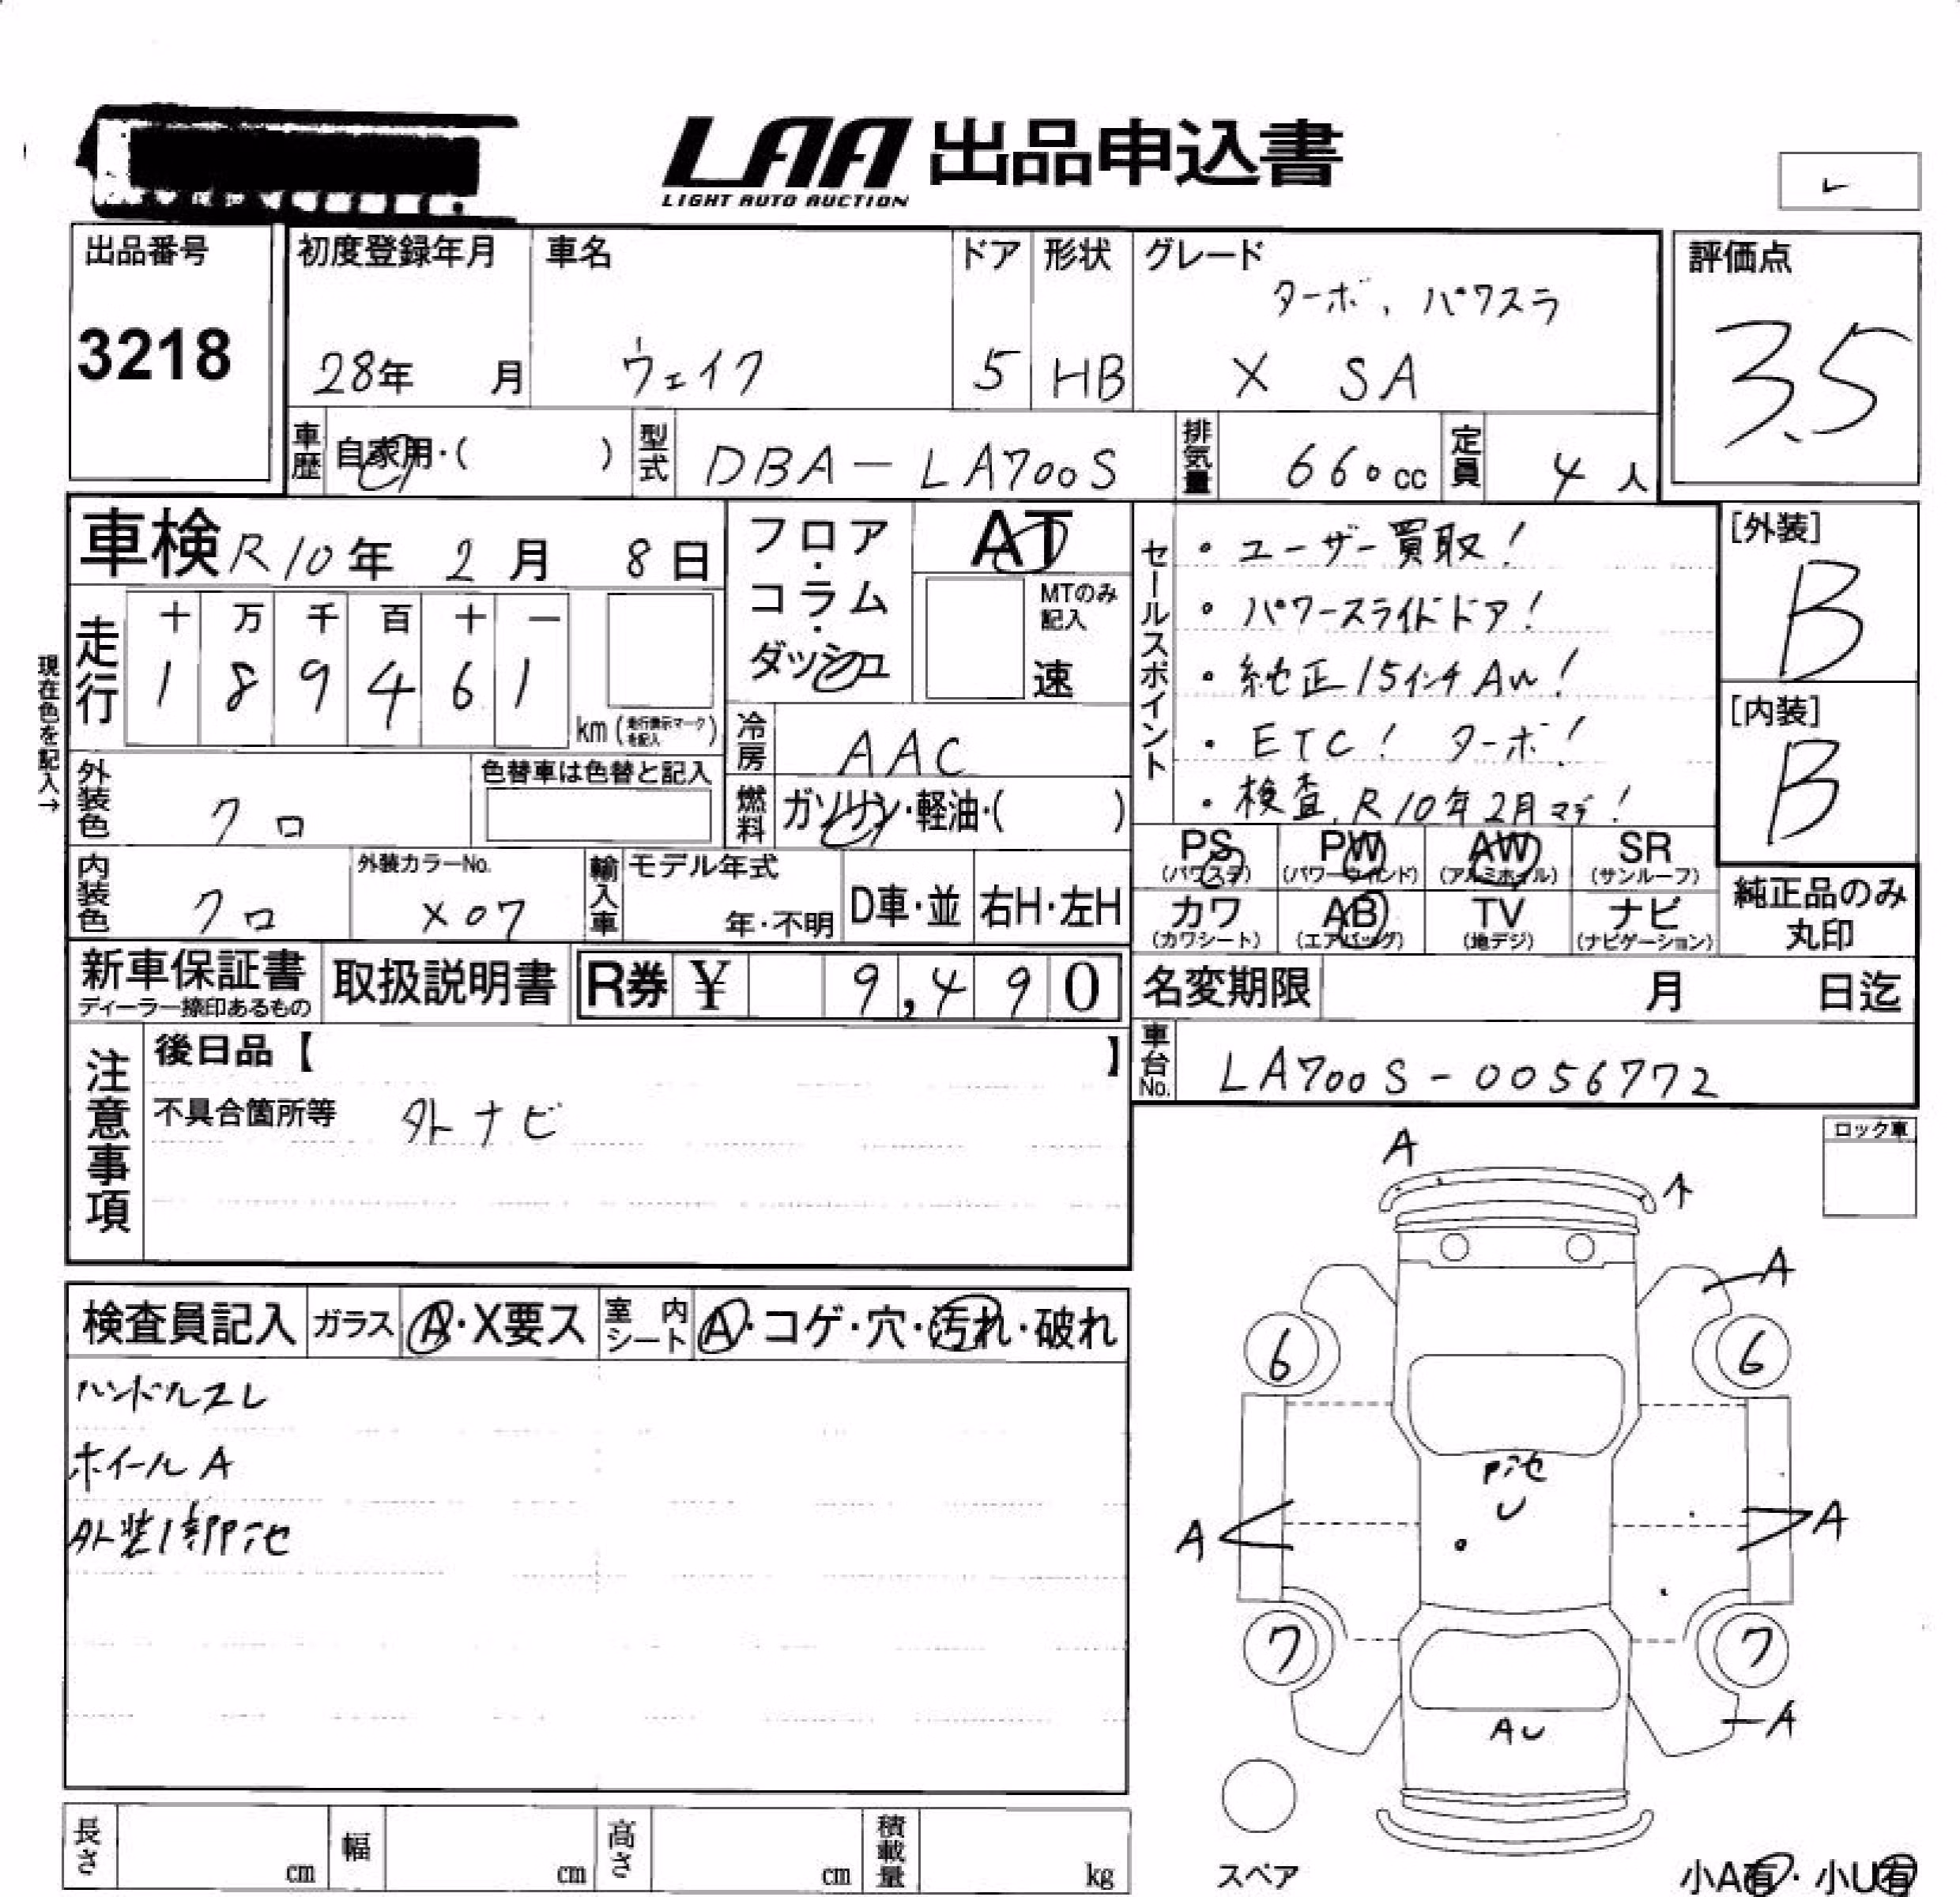 LAA 出品申込書
LIGHT AUTO AUCTION
出品番号
3218
初度登録年月
28年 月
車名
ウェイク
ドア
5
形状
HB
グレード
ターボ、パワスラ
X SA
評価点
3.5
車歴 自家用・( )
型式 DBA-LA700S
排気量 660cc
定員 4人
車検 R10年 2月 8日
現在色を記入→
走行
十 万 千 百 十 一
1 8 9 4 6 1
km (走行表示マークを記入)
外装色 クロ
色替車は色替と記入
内装色 クロ
外装カラーNo.
X07
フロア・コラム・ダッシュ
AT
MTのみ記入
速
冷房 AAC
燃料 ガソリン・軽油・( )
輸入車
モデル年式
年・不明
D車・並
右H・左H
セールスポイント
・ユーザー買取!
・パワースライドドア!
・純正15インチAW!
・ETC! ターボ!
・検査、R10年2月マデ!
[外装]
B
[内装]
B
PS (パワステ)
PW (パワーウィンド)
AW (アルミホイル)
SR (サンルーフ)
カワ (カワシート)
AB (エアバッグ)
TV (地デジ)
ナビ (ナビゲーション)
純正品のみ丸印
新車保証書
ディーラー捺印あるもの
取扱説明書
R券 ¥ 9,490
名変期限 月 日迄
車台No. LA700S-0056772
注意事項
後日品【 】
不具合箇所等 外ナビ
ロック車
検査員記入
ガラス A・X要ス
室内シート A・コゲ・穴・汚れ・破れ
ハンドルスレ
ホイールA
外装1部P池
A
A
A
6
6
P池
U
A
A
7
7
AU
A
スペア
小A有・小U有
長さ cm
幅 cm
高さ cm
積載量 kg